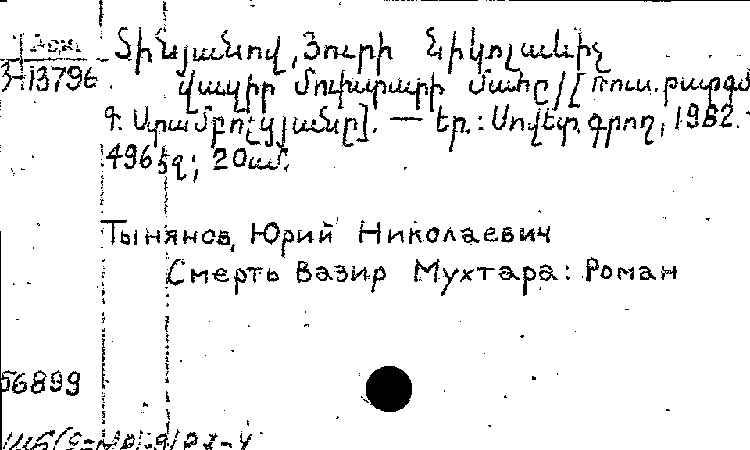 Տինյանով, Յուրի Նիկոլաևիչ
3-13796 Վազիր Մուխտարի մահը/[Ռուս. թարգմ
Գ. Ստամբոլցյանը]. — Եր.: Սովետ. գրող, 1982. -
496 էջ; 20սմ.
Тынянов, Юрий Николаевич
Смерть Вазир Мухтара: Роман
56899